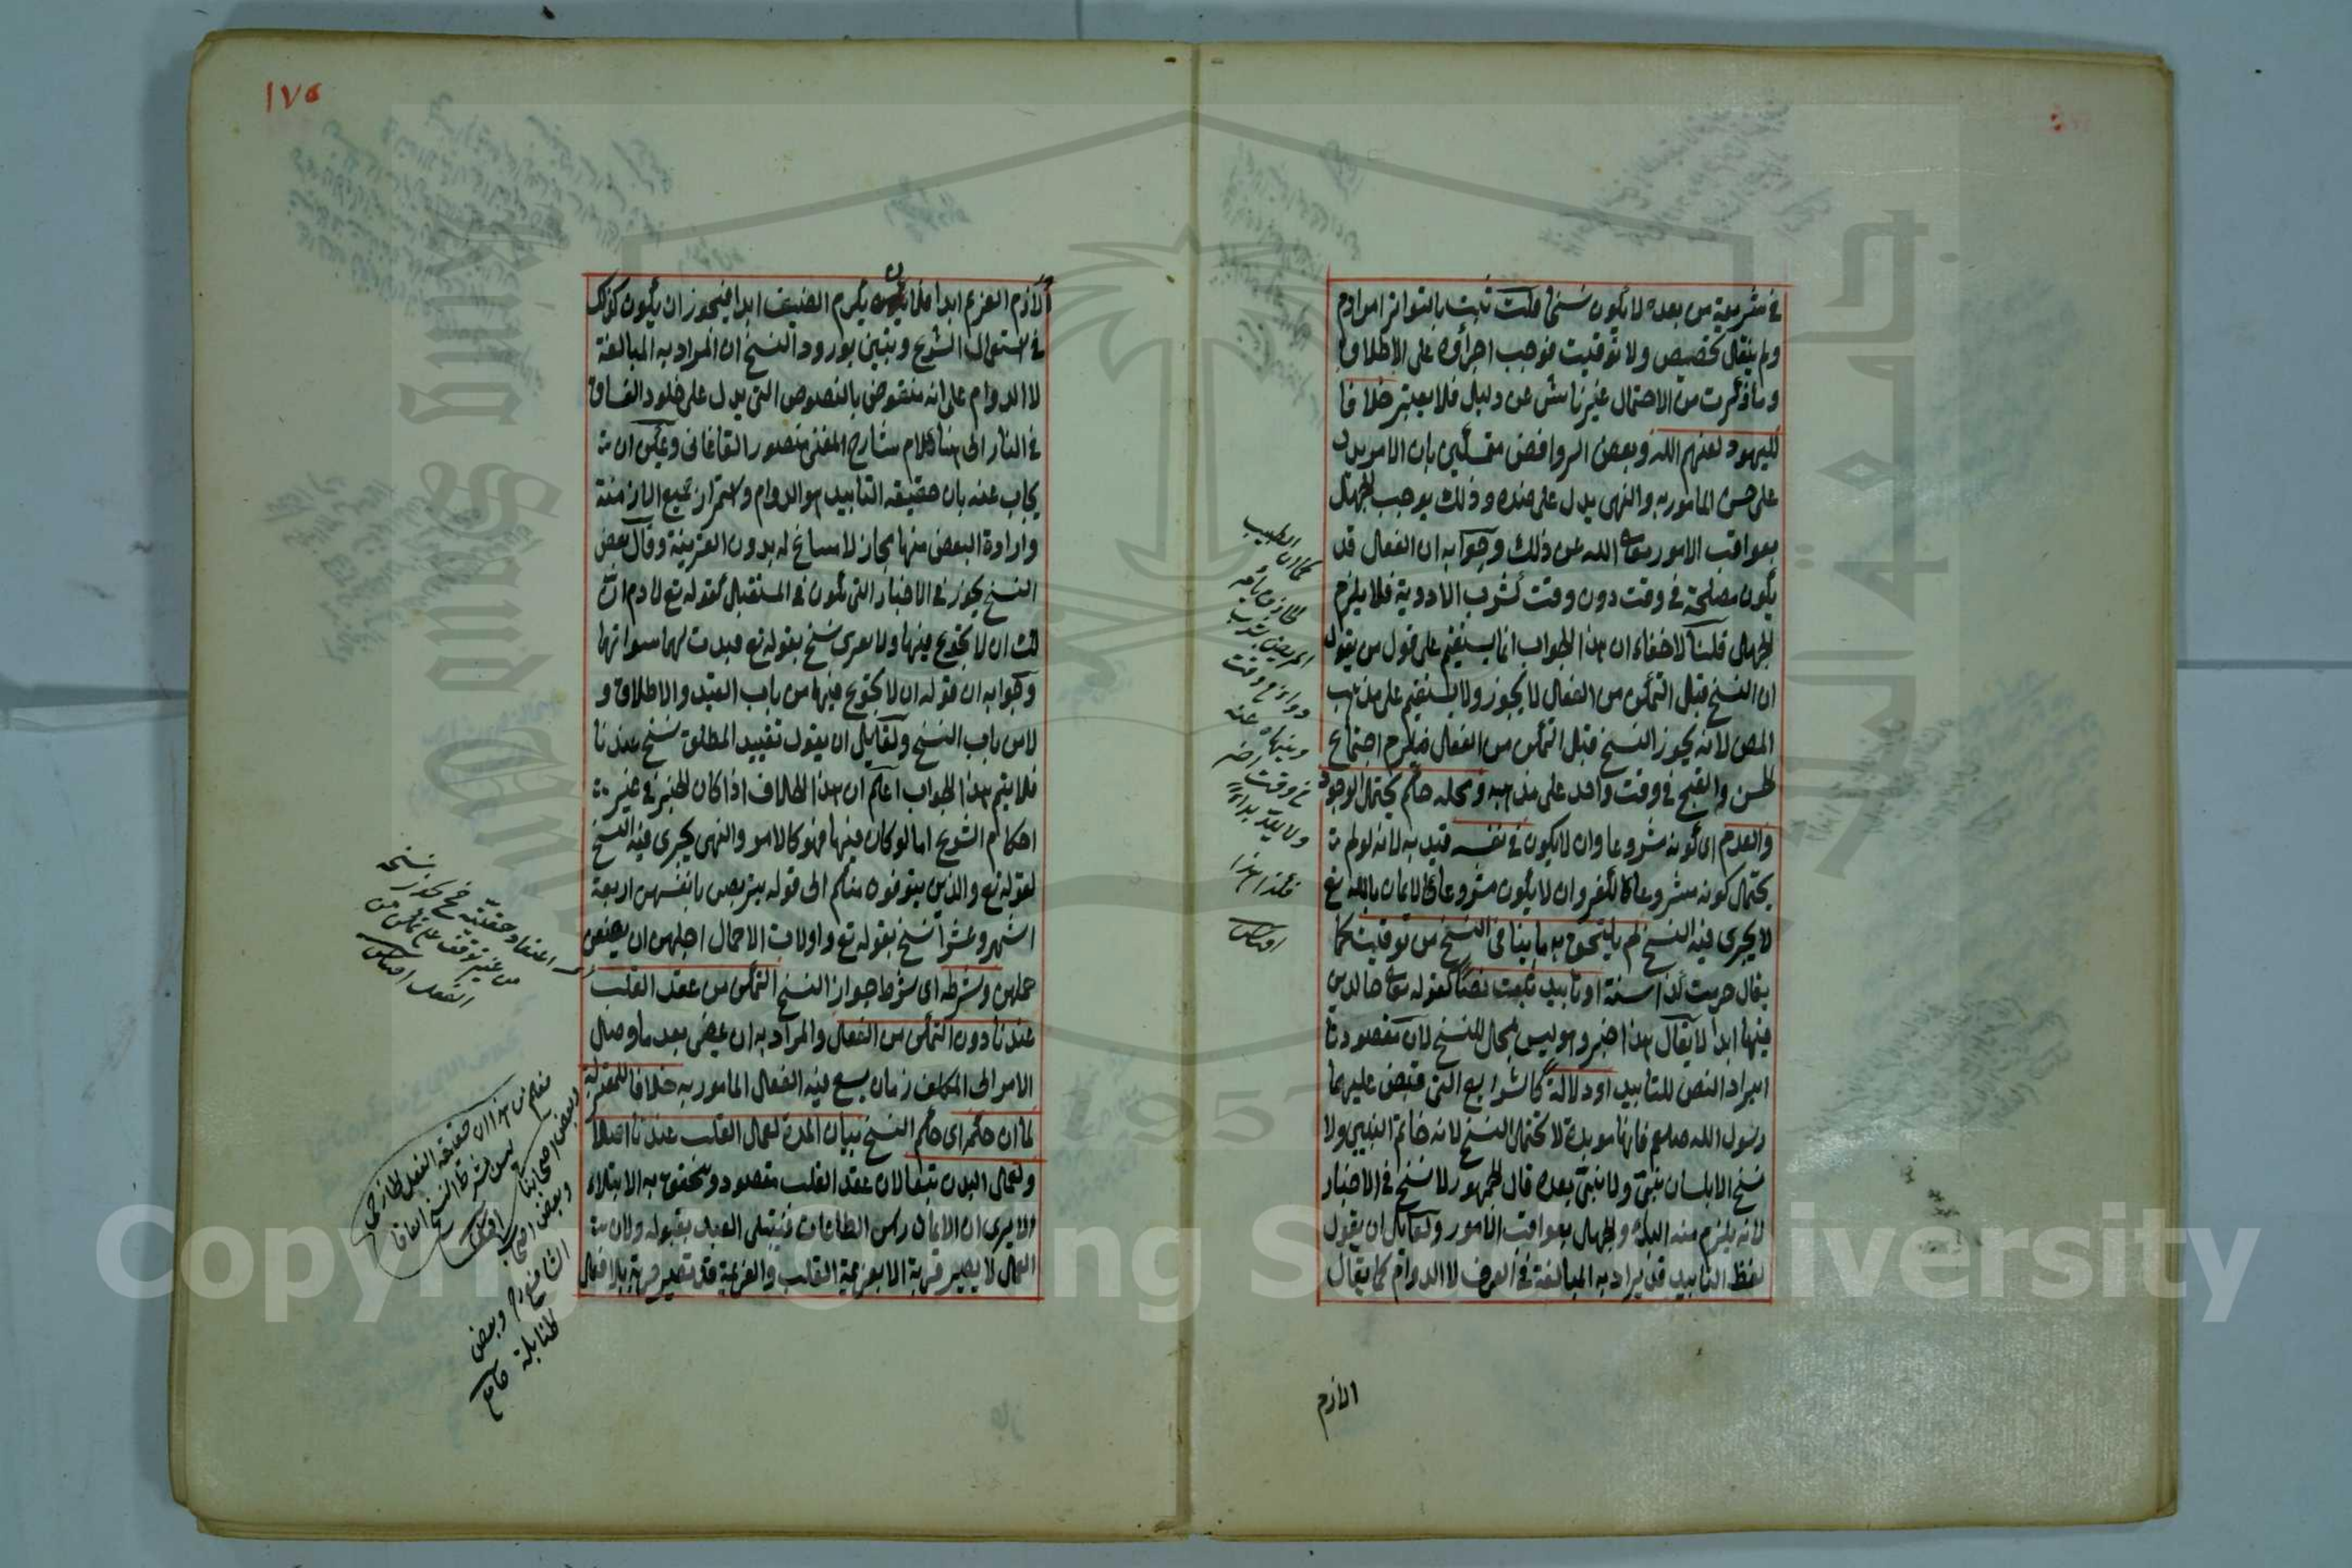 في شريعة من بعده لا يكون نسخا قلت ثبت بالتواتر امر ادم
ولم ينقل تخصيص ولا توقيت فوجب اجراؤه على الاطلاق
وما ذكرت من الاحتمال غير ناش عن دليل فلا يعتبر خلافا
لليهود لعنهم الله وبعض الروافض متمسكين بان الامر يدل
على حسن المامور به والنهي يدل على ضده وذلك يوجب الجهل
بعواقب الامور تعالى الله عن ذلك وجوابه ان الفعل قد
يكون مصلحة في وقت دون وقت كشرب الادوية فلا يلزم
الجهل قلنا لا خفاء ان هذا الجواب انما يستقيم على قول من يقول
ان النسخ قبل التمكن من الفعل لا يجوز ولا يستقيم على مذهب
المص لانه يجوز النسخ قبل التمكن من الفعل فيلزم اجتماع
الحسن والقبح في وقت واحد على مذهبه ومحله حكم يحتمل الوجود
والعدم اي كونه مشروعا وان لا يكون في نفسه قيد به لانه لو لم
يحتمل كونه مشروعا كالكفر وان لا يكون مشروعا كالايمان بالله تع
لا يجري فيه النسخ لم يلتحق به ما ينافي النسخ من توقيت كما
يقال حرمت كذا سنة او تابيد ثبت نصا كقوله تعالى خالدين
فيها ابدا لا يقال هذا خبر وهو ليس بمحل للنسخ لان مقصودنا
ايراد النص للتابيد او دلالة كالشرايع التي قبض عليها
رسول الله صلعم فانها مؤبدة لا تحتمل النسخ لانه خاتم النبيين ولا
نسخ الا بلسان نبي ولا نبي بعده قال الجمهور لا نسخ في الاخبار
لانه يلزم منه البداء والجهل بعواقب الامور ولقائل ان يقول
لفظ التابيد قد يراد به المبالغة في العرف لا الدوام كما يقال
الازم
كما ان الطبيب
المريض بشرب
دواء في وقت
وينهاه عنه
في وقت اخر
ولا يعد بداء
فكذا هذا
١٧٥
لازم الغريم ابدا فلان يكرم الضيف ابدا فيجوز ان يكون كذلك
في استعمال الشرع ويتبين بورود النسخ ان المراد به المبالغة
لا الدوام على انه منقوض بالنصوص التي يدل على خلود الفساق
في النار الى هنا كلام شارح المغني منصور القاغاني ويمكن ان
يجاب عنه بان حقيقة التابيد هو الدوام واستمرار جميع الازمنة
وارادة البعض منها مجاز لا مساغ له بدون القرينة وقال بعض
النسخ يجوز في الاخبار التي تكون في المستقبل كقوله تع لادم ان
لك ان لا تجوع فيها ولا تعرى نسخ بقوله تع فبدت لهما سوآتهما
وجوابه ان قوله ان لا تجوع فيها من باب القيد والاطلاق و
لا من باب النسخ ولقائل ان يقول تقييد المطلق نسخ عندنا
فلا يتم هذا الجواب اعلم ان هذا الخلاف اذا كان الخبر في غير
احكام الشرع اما لو كان فيها فهو كالامر والنهي يجري فيه النسخ
لقوله تع والذين يتوفون منكم الى قوله يتربصن بانفسهن اربعة
اشهر وعشرا نسخ بقوله تع واولات الاحمال اجلهن ان يضعن
حملهن وشرطه اي شرط جواز النسخ التمكن من عقد القلب
عندنا دون التمكن من الفعل والمراد به ان يمضي بعد ما وصل
الامر الى المكلف زمان يسع فيه الفعل المامور به خلافا للمعتزلة
لما ان حكمه اي حكم النسخ بيان المدة لعمل القلب عندنا اصلا
ولعمل البدن تبعا لان عقد القلب مقصود ويتحقق به الابتلاء
الا يرى ان الايمان راس الطاعات فيبتلى العبد بقبوله ولان
العمل لا يصير قربة الا بعزيمة القلب والعزيمة قد تصير قربة بلا فعل
اي اعتقاد حقيته
من غير توقف على تمكن من
الفعل
فعلم من هذا ان حقيقة الفعل الخارجي
ليس بشرط النسخ اتفاقا
وبعض اصحابنا
وبعض اصحاب
الشافعي وبعض
الحنابلة